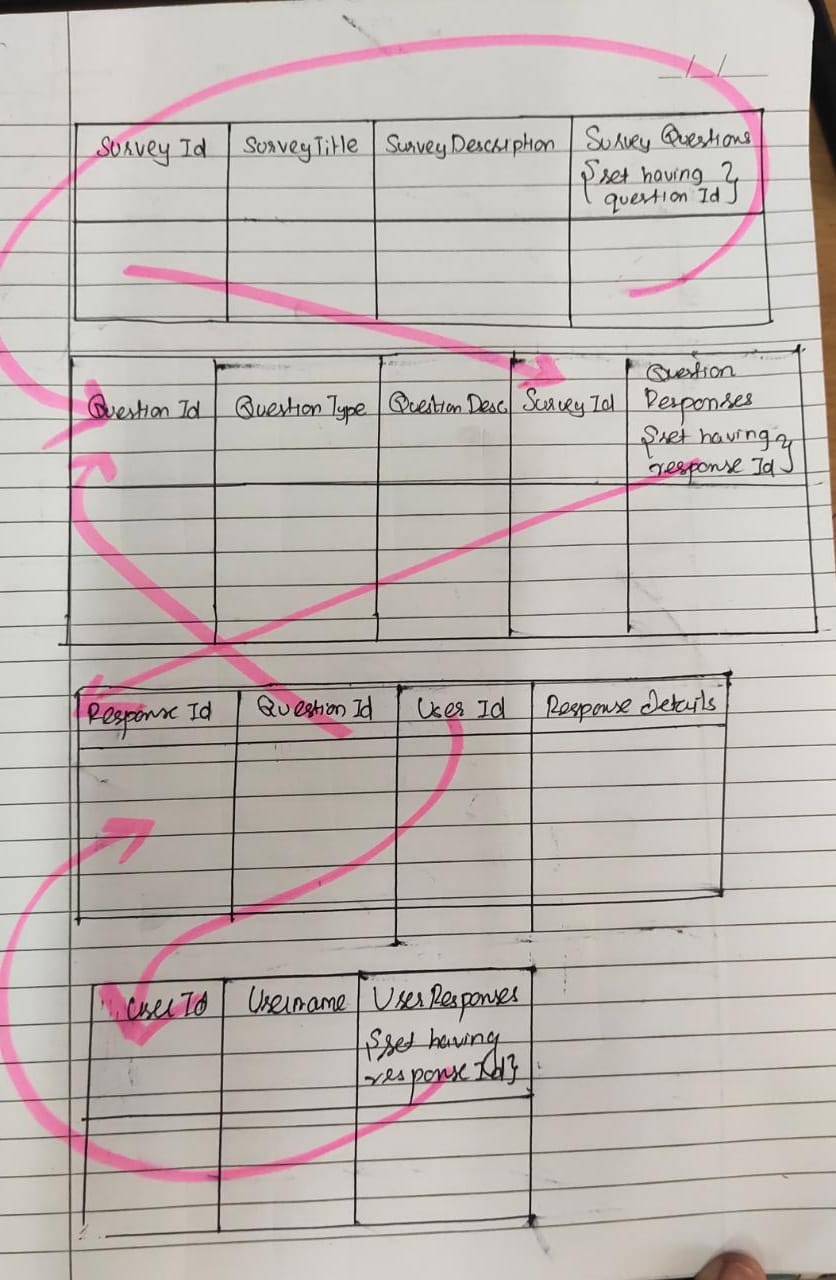 _/_/__
Survey Id Survey Title Survey Description Survey Questions
{set having
question Id}
Question Id Question Type Question Desc Survey Id Question
Responses
{set having
response Id}
Response Id Question Id User Id Response details
User Id Username User Responses
{set having
response Id}